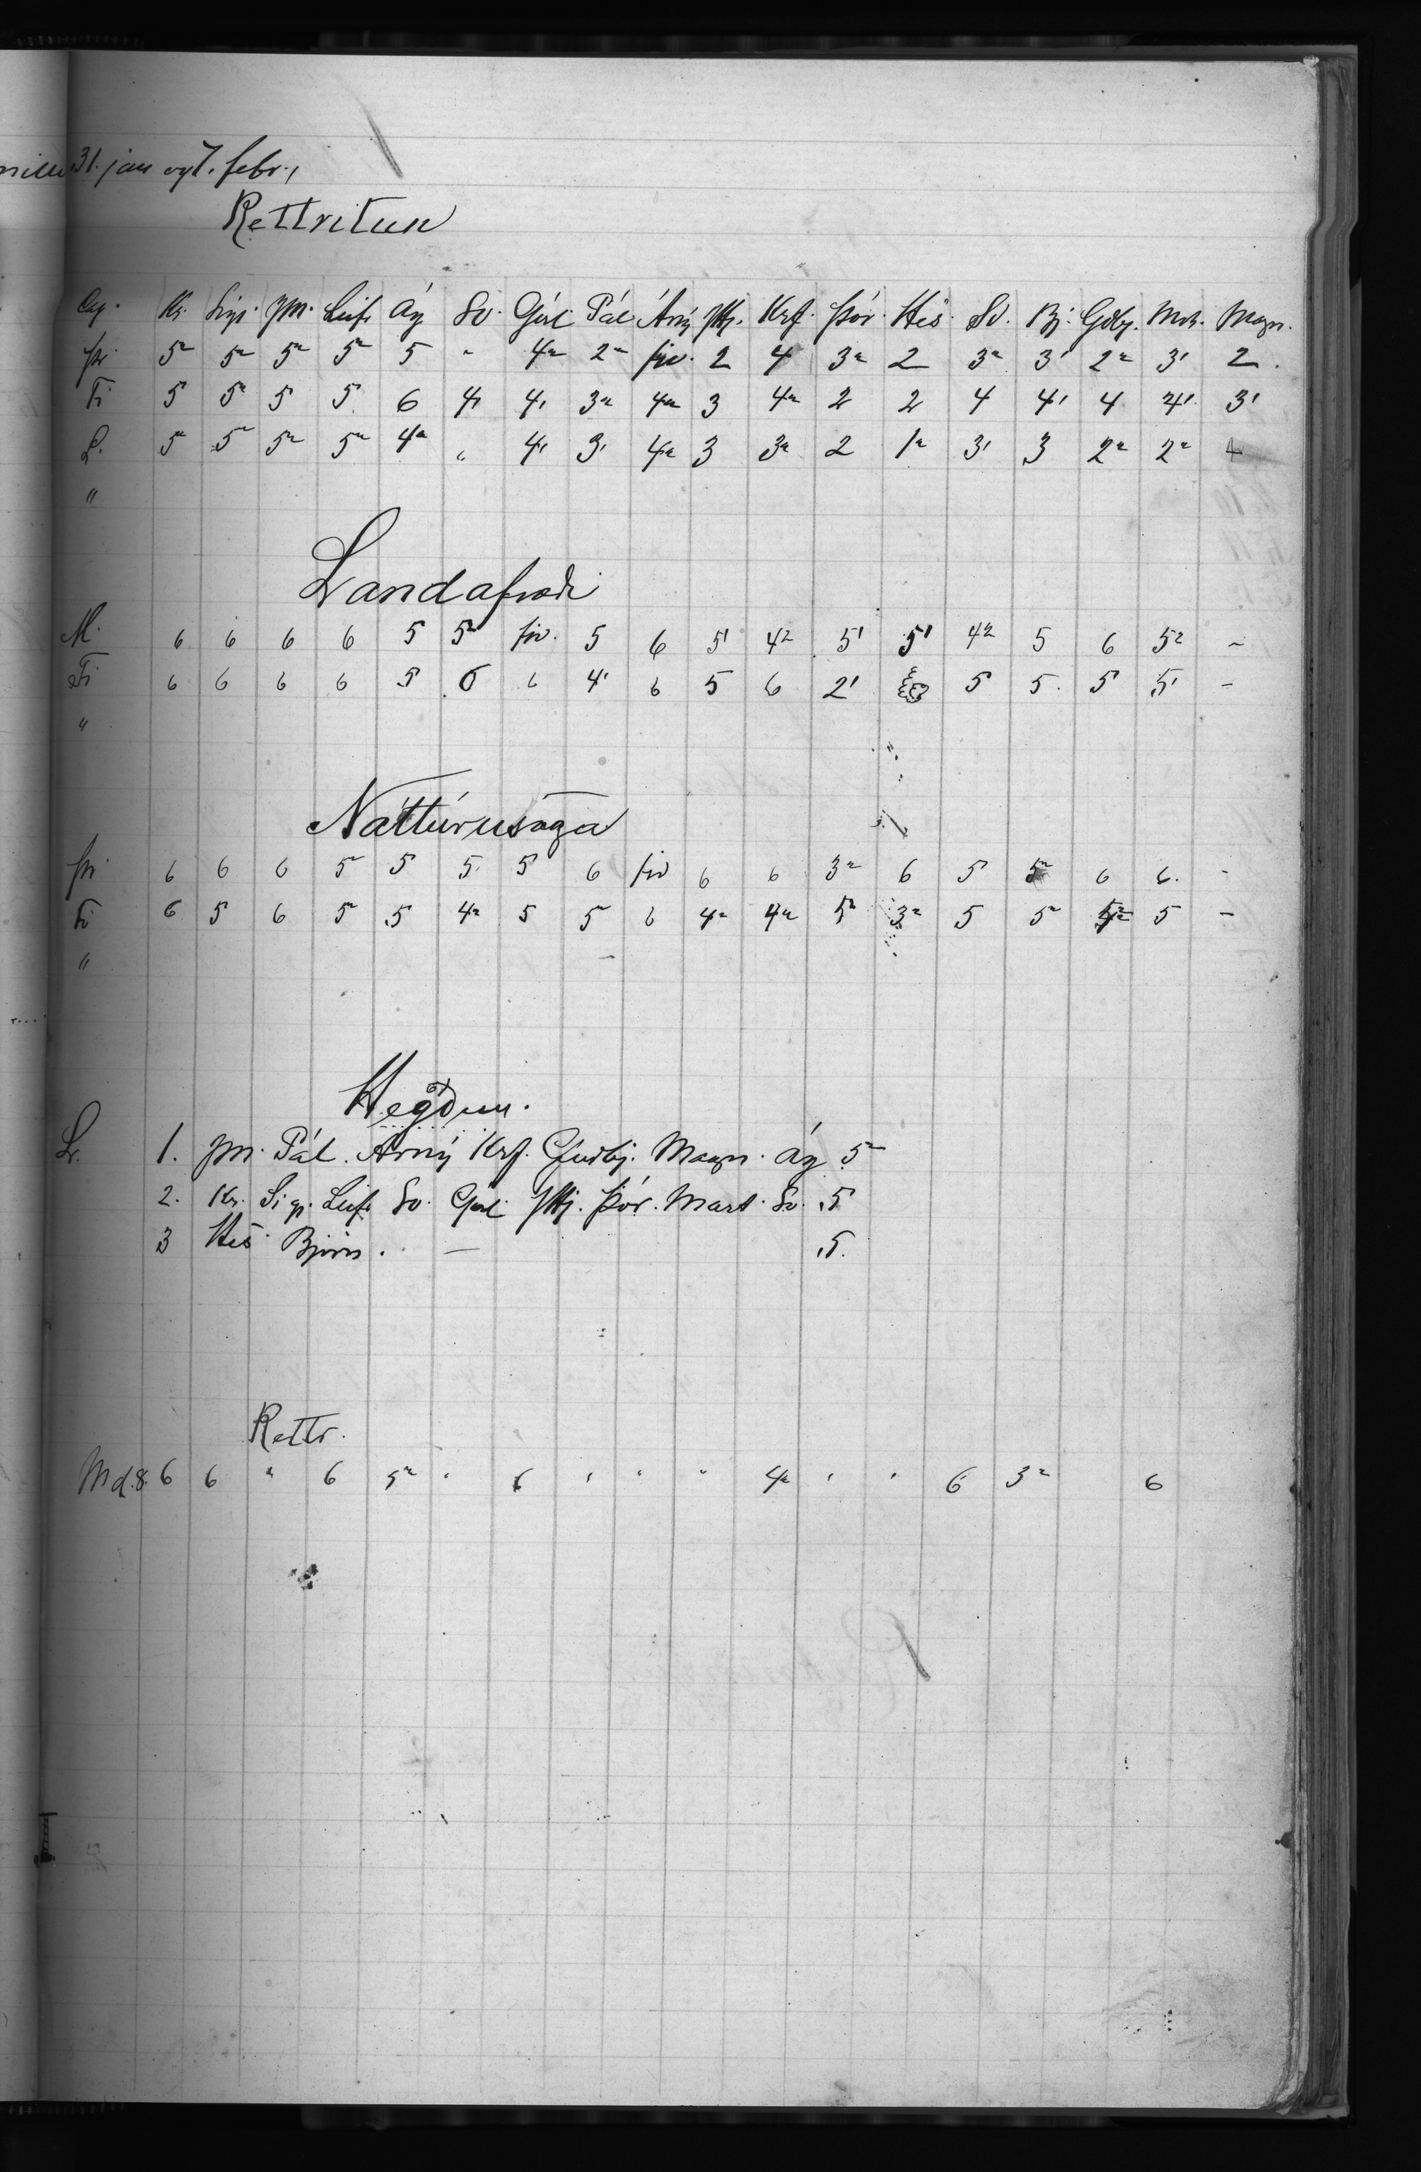 31. jan og 7. febr.,
Rettritun
Kr. Sigr. JM. Leifr Ág Sv. Guðl Pál Árný JHj. Krf. Þór. Hes. Sv. Bj. Gðbj. Mrt. Magn.
Þr. 5² 5² 5² 5² 5 " 4² 2² frv. 2 4 3² 2 3² 3' 2² 3' 2.
Fi 5 5² 5 5 6 4' 4' 3² 4² 3 4² 2 2 4 4' 4 4' 3'
L. 5² 5² 5² 5² 4² " 4' 3' 4² 3 3² 2 1² 3' 3 2² 2² 4
"
Landafræði
M. 6 6 6 6 5 5² frv. 5 6 5' 4² 5' 5' 4² 5 6 5² -
Fi 6 6 6 6 5 6 6 4' 6 5 6 2' 5 5. 5 5' -
"
Náttúrusaga
Þri 6 6 6 5² 5 5. 5 6 frv 6 6 3² 6 5 5² 6 6. -
Fi 6 5 6 5² 5 4² 5 5² 6 4² 4² 5² 3² 5 5² 5² 5 -
"
Hegðun.
L. 1. JM. Pál. Árný Krf. Guðbj. Magn. Ág 5²
2. Kr. Sigr. Leifr Sv. Guðl JHj. Þór. Mart. Sv. 5
3 Hes Björn. — 5.
Rettr.
Md. 8. 6 6 " 6 5² ' 6 ' " " 4² ' ' 6 3² 6